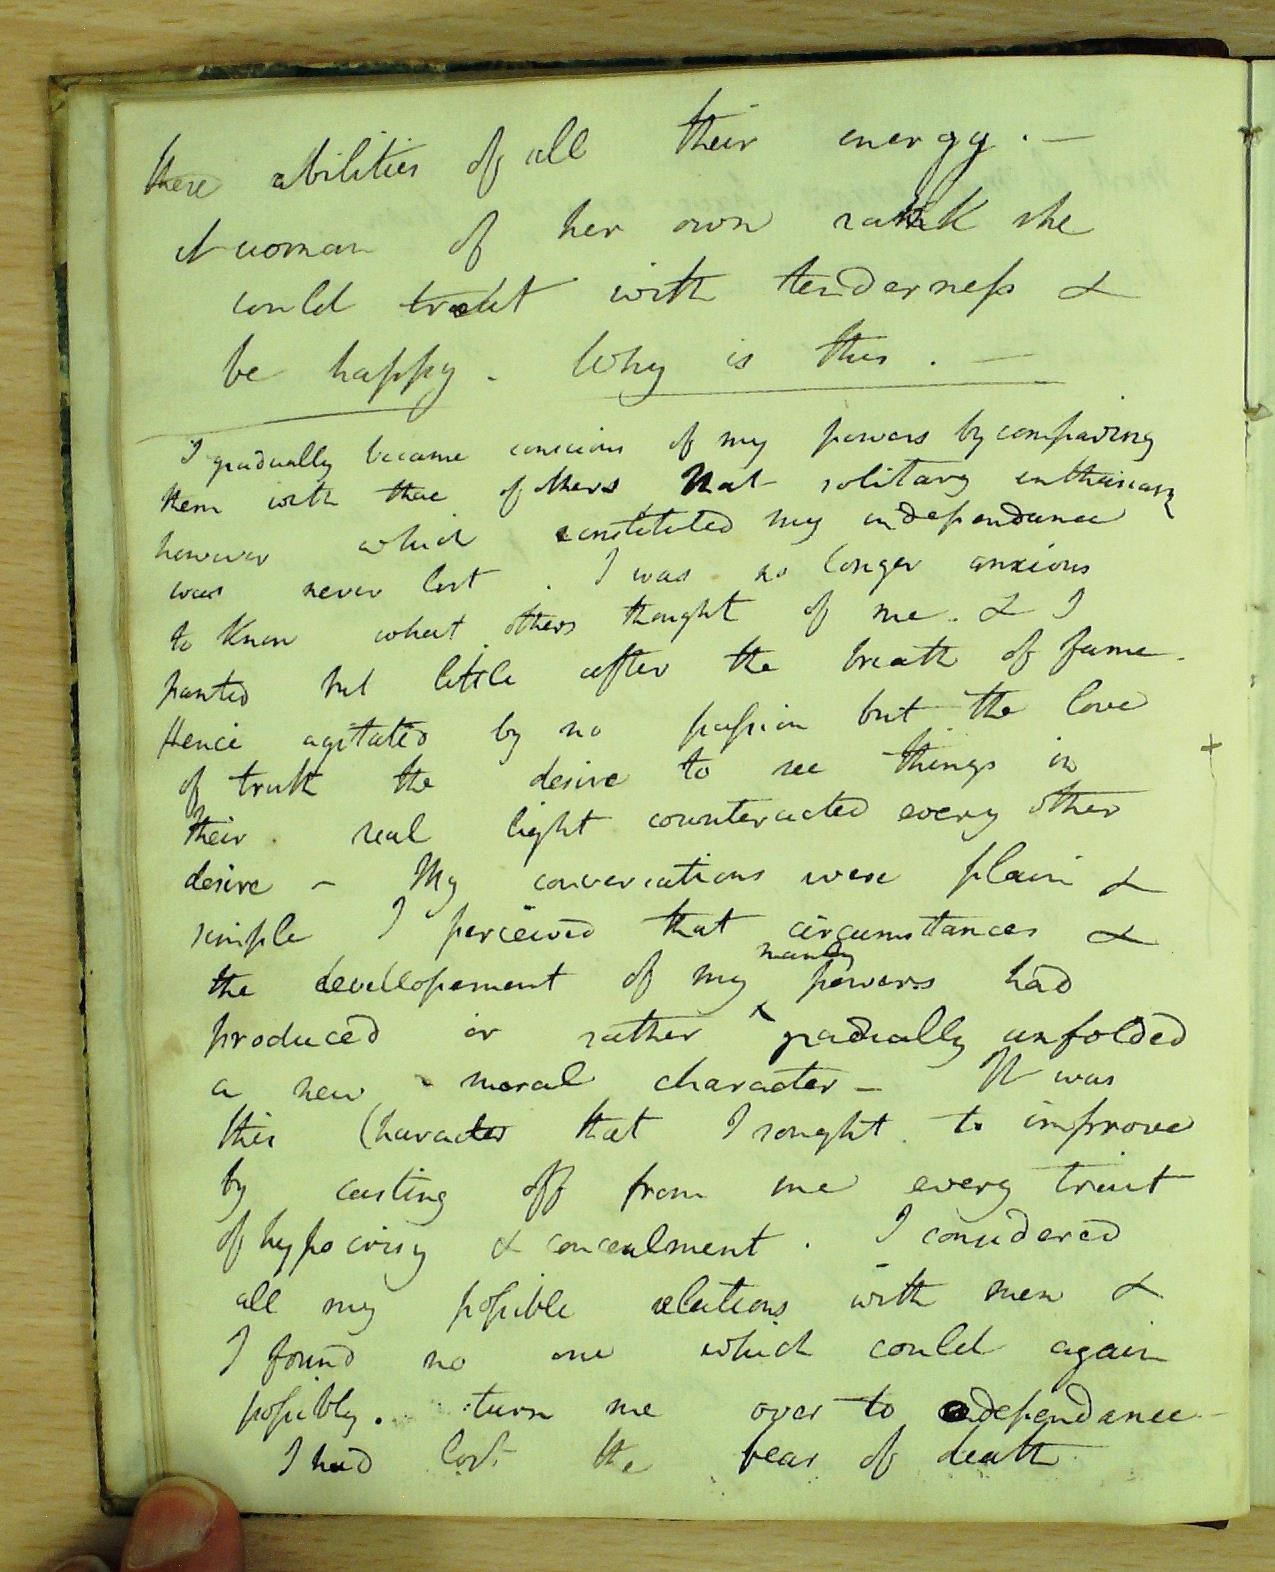 these abilities of all their energy. —
A woman of her own rank she
could treat with tenderness &
be happy. Why is this. —
I gradually became conscious of my powers by comparing
them with those of others. That solitary enthusiasm
however which constituted my independance
was never lost. I was no longer anxious
to know what others thought of me. & I
panted but little after the breath of fame.
Hence agitated by no passion but the love
of truth the desire to see things in
their real light counteracted every other
desire – My conversations were plain &
simple I perceived that circumstances &
the developement of my manly powers had
produced or rather gradually unfolded
a new moral character – It was
this Character that I sought to improve
by casting off from me every trait
of hypocrisy & concealment. I considered
all my possible relations with men &
I found no one which could again
possibly. turn me over to dependance –
I had lost the fear of death